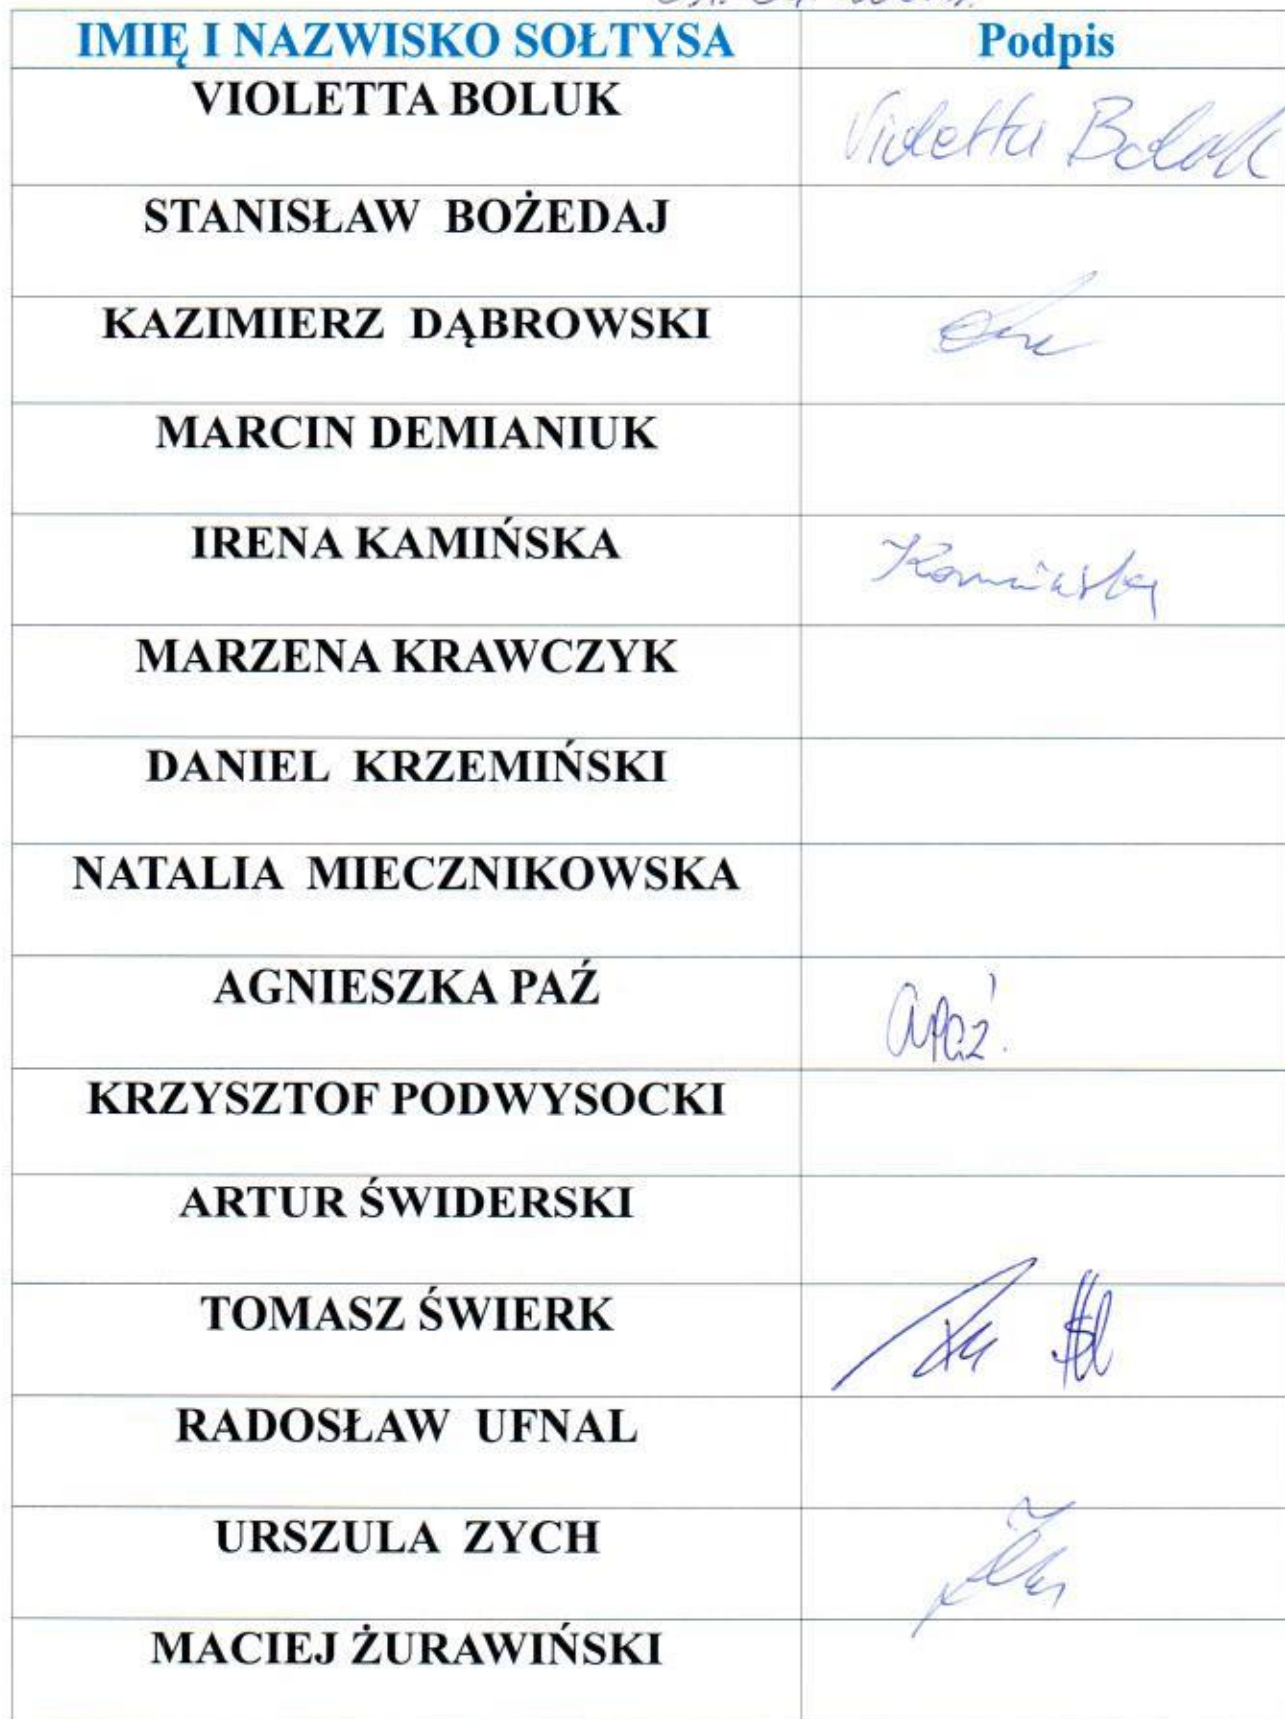 IMIĘ I NAZWISKO SOŁTYSA Podpis
VIOLETTA BOLUK Violetta Boluk
STANISŁAW BOŻEDAJ
KAZIMIERZ DĄBROWSKI
MARCIN DEMIANIUK
IRENA KAMIŃSKA Kamińska
MARZENA KRAWCZYK
DANIEL KRZEMIŃSKI
NATALIA MIECZNIKOWSKA
AGNIESZKA PAŹ APaź.
KRZYSZTOF PODWYSOCKI
ARTUR ŚWIDERSKI
TOMASZ ŚWIERK
RADOSŁAW UFNAL
URSZULA ZYCH
MACIEJ ŻURAWIŃSKI